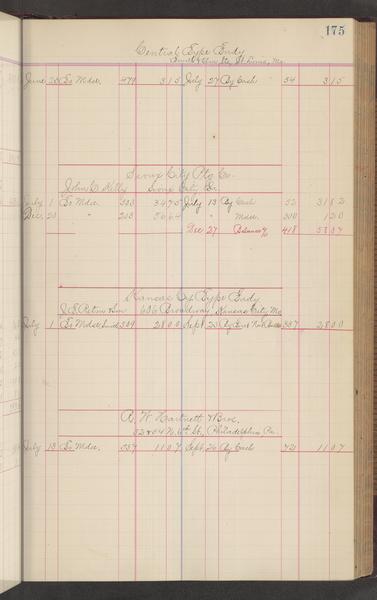 175
Central Type Fndy
St. Louis, Mo.
June 28 To Mdse. 479 3 15 July 27 By Cash 54 3 15
Sioux City Ptg Co.
John C. Kelly Sioux City Ia.
July 1 To Mdse. 503 34 75 July 13 By Cash 52 31 82
Dec. 20 " 203 56 64 " Mdse. 200 1 20
Dec 27 Balance 418 58 07
Kansas City Type Fndy
606 Broadway, Kansas City Mo
July 1 To Mdse 509 28 00 Sept 20 By 507 28 00
R. W. Hartnett & Bros.
52 & 54 N. 6th St., Philadelphia, Pa.
July 13 To Mdse. 557 11 07 Sept 26 By Cash 72 11 07